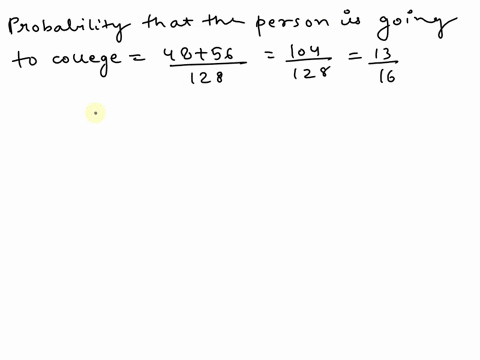 Probability that the person is going
to college = 48+56/128 = 104/128 = 13/16